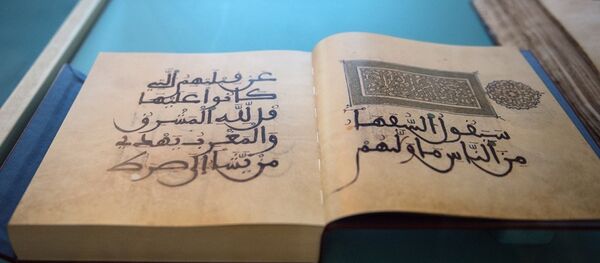 سيقول السفها
من الناس ما ولىهم
عن قبلتهم التي
كانوا عليها
قل لله المشرق
والمغرب يهدي
من يشا الى صرط